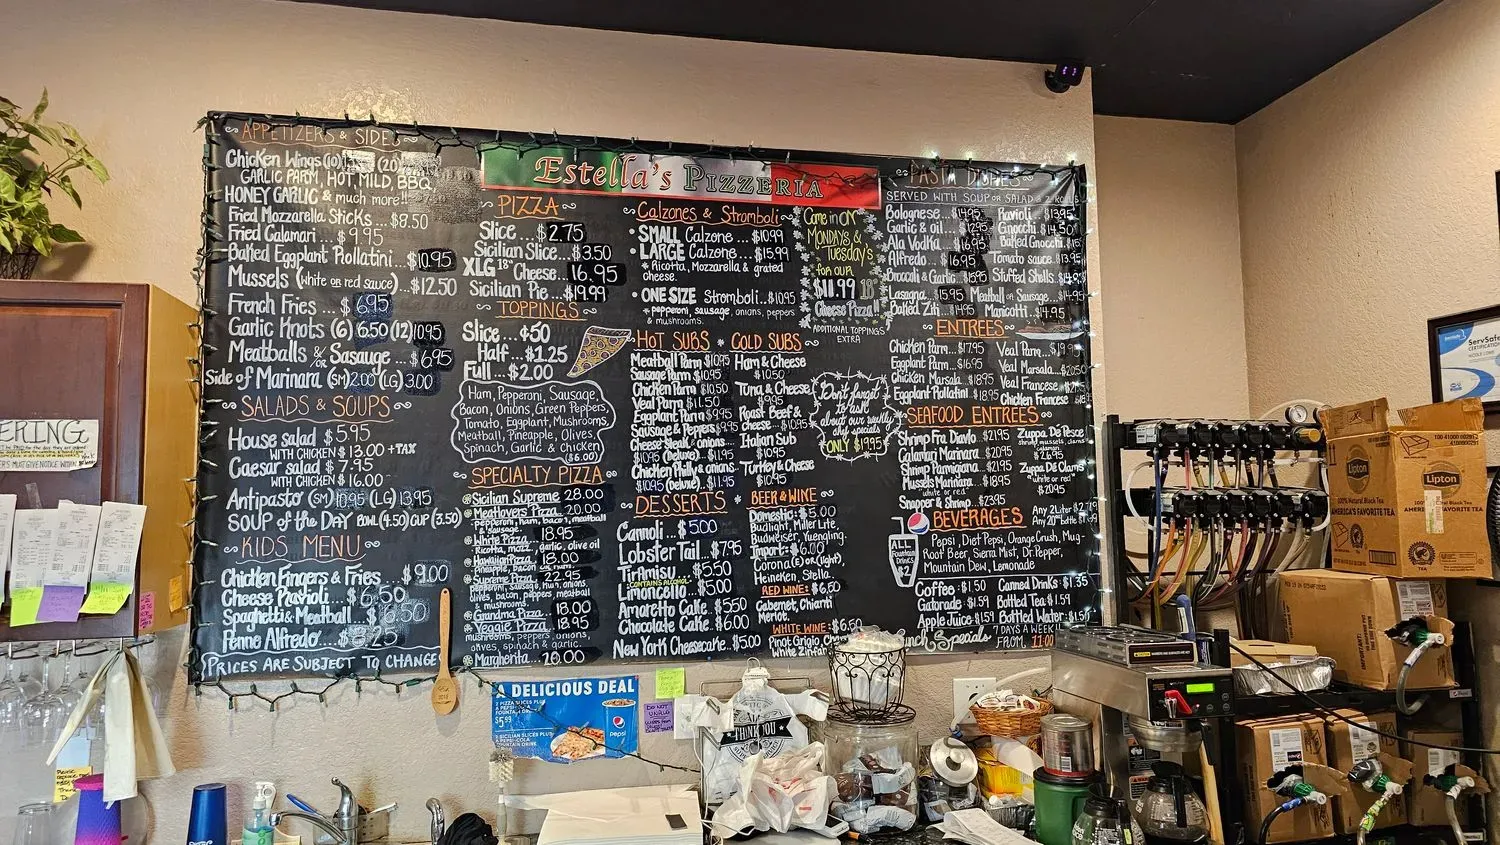 APPETIZERS & SIDES
Chicken Wings (10) (20)
GARLIC PARM, HOT, MILD, BBQ,
HONEY GARLIC & much more!!
Fried Mozzarella Sticks... $8.50
Fried Calamari ... $9.95
Baked Eggplant Rollatini... $10.95
Mussels (white or red sauce) ... $12.50
French Fries ... $6.95
Garlic Knots (6) 6.50 (12) 10.95
Meatballs or Sasauge... $6.95
Side of Marinara (SM) 2.00 (LG) 3.00
SALADS & SOUPS
House salad $5.95
WITH CHICKEN $13.00 +TAX
Caesar salad $7.95
WITH CHICKEN $16.00
Antipasto (SM) 10.95 (LG) 13.95
SOUP of the DAY BOWL (4.50) CUP (3.50)
KIDS MENU
Chicken Fingers & Fries... $9.00
Cheese Ravioli ... $6.50
Spaghetti & Meatball... $6.50
Penne Alfredo... $8.25
PRICES ARE SUBJECT TO CHANGE
Estella's PIZZERIA
PIZZA
Slice ... $2.75
Sicilian Slice... $3.50
XLG 18" Cheese... 16.95
Sicilian Pie... $19.99
TOPPINGS
Slice ... $.50
Half ... $1.25
Full ... $2.00
Ham, Pepperoni, Sausage,
Bacon, Onions, Green Peppers,
Tomato, Eggplant, Mushrooms,
Meatball, Pineapple, Olives,
Spinach, Garlic & Chicken
($6.00)
SPECIALTY PIZZA
Sicilian Supreme 28.00
Meatlovers Pizza 20.00
pepperoni, ham, bacon, meatball
& sausage
White Pizza 18.95
Ricotta, mozz, garlic, olive oil
Hawaiian Pizza
Pineapple, bacon or ham
Supreme Pizza 22.95
pepperoni, sausage, ham, onions,
olives, bacon, peppers, meatball
& mushrooms
Grandma Pizza 18.00
Veggie Pizza 18.95
mushrooms, peppers, onions,
olives, spinach & garlic
Margherita... 20.00
Calzones & Stromboli
• SMALL Calzone ... $10.99
• LARGE Calzone ... $15.99
* Ricotta, Mozzarella & grated
cheese.
• ONE SIZE Stromboli... $10.95
* pepperoni, sausage, onions, peppers
& mushrooms.
Come in ON
MONDAYS &
Tuesday's
for our
$11.99 18"
Cheese Pizza!!
ADDITIONAL TOPPINGS
EXTRA
HOT SUBS * COLD SUBS
Meatball Parm $10.95
Sausage Parm $10.95
Chicken Parm $10.50
Veal Parm $11.50
Eggplant Parm $9.95
Sausage & Peppers $9.95
Cheese Steak & onions
$10.95 (Deluxe) $11.95
Chicken Philly & onions
$10.95 (deluxe) $11.95
Ham & Cheese
$10.50
Tuna & Cheese
$9.95
Roast Beef &
cheese $10.95
Italian Sub
$10.95
Turkey & Cheese
$10.95
Don't forget
to ask
about our weekly
chef specials
ONLY $13.95
DESSERTS * BEER & WINE
Cannoli ... $5.00
Lobster Tail... $7.95
Tiramisu ... $5.50
*CONTAINS ALCOHOL*
Limoncello... $5.00
Amaretto Cake... $5.50
Chocolate Cake... $6.00
New York Cheesecake... $5.00
Domestic: $5.00
Budlight, Miller Lite,
Budweiser, Yuengling.
Import: $6.00
Corona (E) or (Light),
Heineken, Stella.
RED WINE: $6.50
Cabernet, Chianti
Merlot.
WHITE WINE: $6.50
Pinot Grigio, Cha
White Zinfan
PASTA DISHES
SERVED WITH SOUP OR SALAD & 2 k
Bolognese... $14.95
Garlic & oil... 12.95
Ala Vodka ... 16.95
Alfredo... 16.95
Broccoli & Garlic $15.95
Lasagna 15.95
Baked Ziti ... 14.95
Ravioli... $13.95
Gnocchi.. $14.50
Baked Gnocchi..
Tomato sauce.. $13.95
Stuffed Shells..
Meatball or Sausage... $14.95
Manicotti.. $14.95
ENTREES
Chicken Parm... $17.95
Eggplant Parm.. $16.95
Chicken Marsala.. $18.95
Eggplant Rollatini $18.95
Veal Parm... $19.
Veal Marsala... $20.50
Veal Francese
Chicken Francese
SEAFOOD ENTREES
Shrimp Fra Diavlo... $21.95
Calamari Marinara 20.95
Shrimp Parmigiana... $21.95
Mussels Marinara... $18.95
white or red
Snapper & Shrimp... $23.95
Zuppa De Pesce
Zuppa De Clams
white or red
$20.95
BEVERAGES
Any 2 Liter $2.79
Any 20oz bottle
ALL
fountain
Drinks
$2
Pepsi, Diet Pepsi, Orange Crush, Mug-
Root Beer, Sierra Mist, Dr. Pepper,
Mountain Dew, Lemonade
Coffee.. $1.50
Gatorade.. $1.59
Apple Juice.. $1.59
Canned Drinks.. $1.35
Bottled Tea.. $1.59
Bottled Water.. $1.50
nch Specials
7 DAYS A WEEK
FROM 11:00
A DELICIOUS DEAL
2 PIZZA SLICES PLUS
$5.99
2 SICILIAN SLICES PLUS
A PEPSI-COLA
FOUNTAIN DRINK
pepsi
THANK YOU
ERING
Lipton
100% Natural Black Tea
AMERICA'S FAVORITE TEA
Lipton
AMERICA'S FAVORITE TEA
ServSafe
CERTIFICATION